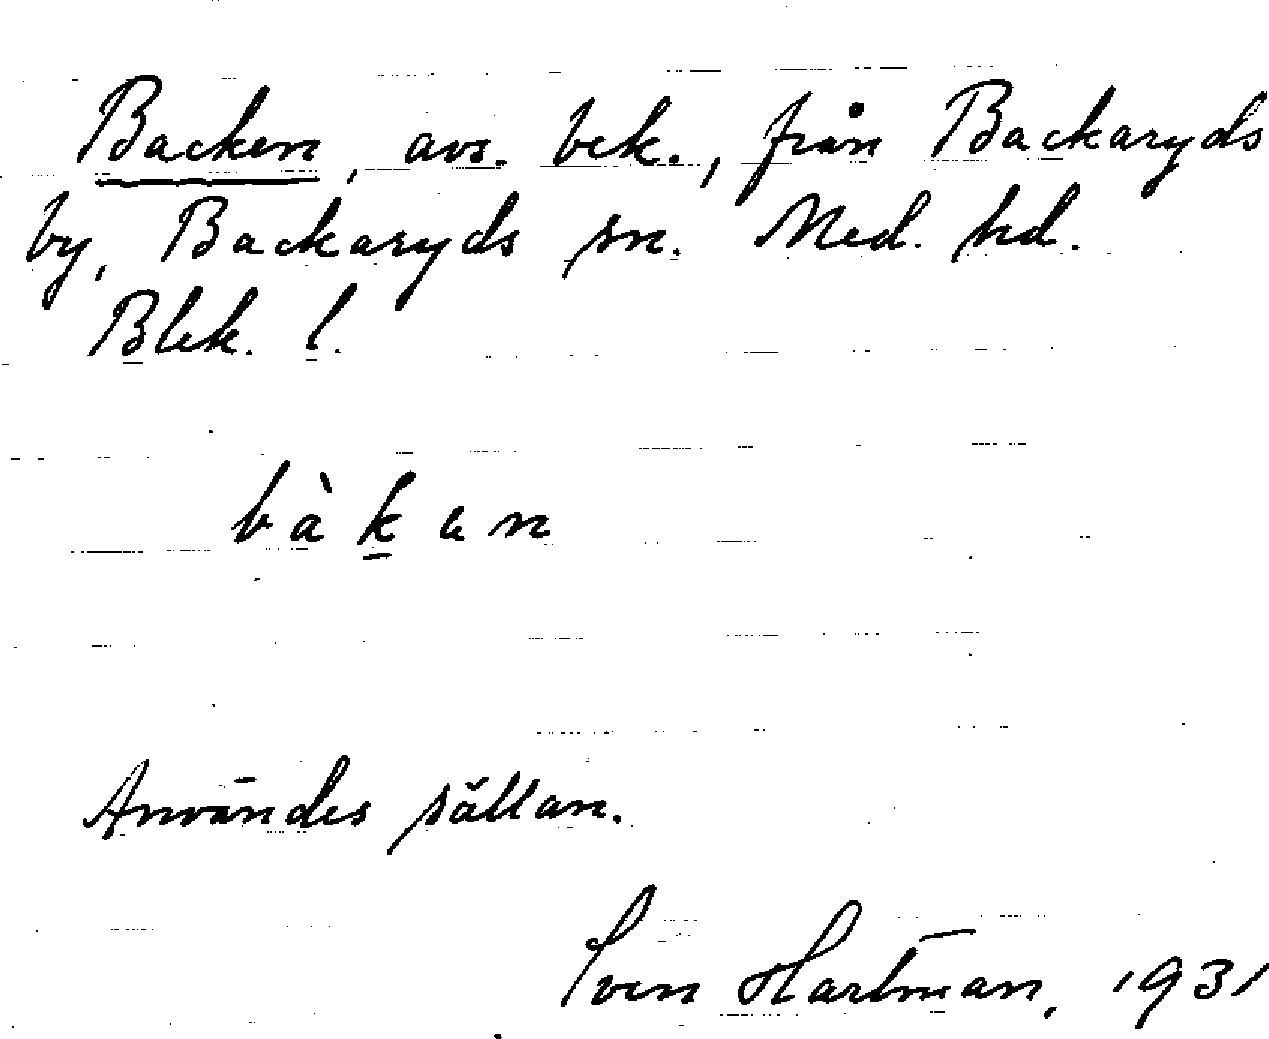 Backen, avs. bek., från Backaryds
by, Backaryds sn. Med. hd.
Blek. l.
bàkan
Användes sällan.
Sven Hartman, 1931